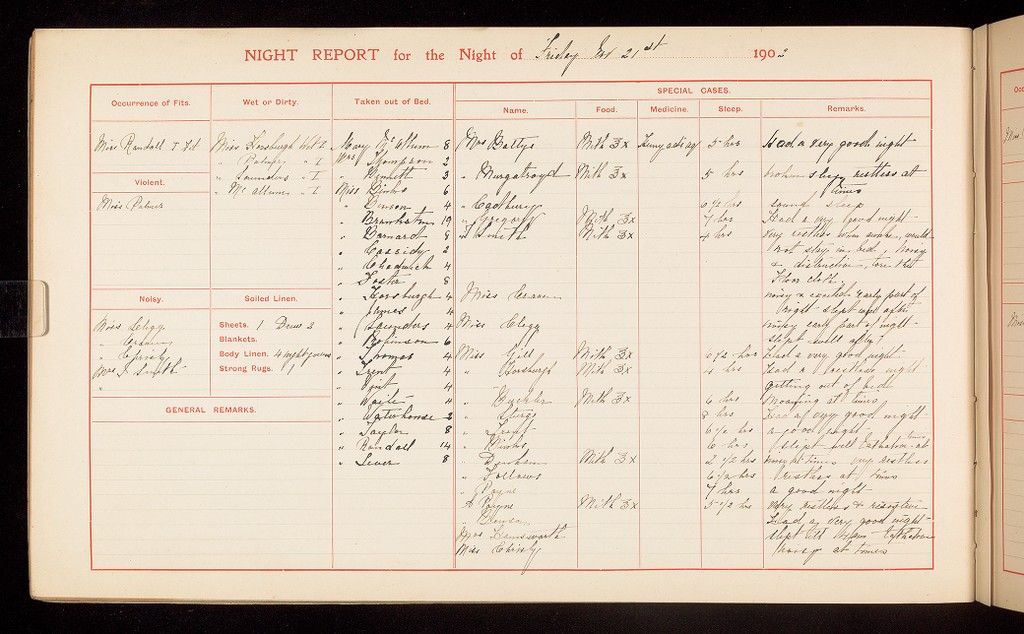 NIGHT REPORT for the Night of Friday Nov 21st 1902
SPECIAL CASES.
Occurrence of Fits. Wet or Dirty. Taken out of Bed. Name. Food. Medicine. Sleep. Remarks.
Miss Randall 1 Fit
Violent.
Miss Palmer
Noisy.
Miss Clegg
" Craven
" Christy
Mrs S Smith
Miss Horsburgh Wet 2
" Palmer " 1
" Saunders " 1
" McCallum " 1
Soiled Linen.
Sheets. 1 Draw 3
Blankets.
Body Linen. 4 nightgowns
Strong Rugs. 1
GENERAL REMARKS.
Mary 8
Mrs Thompson 2
" 3
Miss Binks 6
" Benson 4
" 19
" Barnard 8
" Cassidy 2
" Chadwick 4
" Foster 8
" Horsburgh 4
" James 4
" Saunders 4
" Robinson 6
" Thomas 4
" Trent 4
" 4
" Waite 4
" Waterhouse 2
" Taylor 8
" Randall 14
" Lever 8
Mrs Battye Milk 3x 5 hrs Had a very good night
" Murgatroyd Milk 3x 5 hrs broken sleep restless at
times
" 6 1/2 hrs sound sleep
" Gregory Milk 3x 7 hrs Had a very good night
" S Smith Milk 3x 4 hrs Very restless when awake, would
not stay in bed, Noisy
& destructive, tore the
Floor cloth
Miss Craven noisy & excited early part of
night slept well after
Miss Clegg noisy early part of night
slept well after
Miss Gill Milk 3x 6 1/2 hrs Had a very good night
" Horsburgh Milk 3x 4 hrs Had a restless night
getting out of bed
" Milk 3x 6 hrs Moaning at times
" Sturge 8 hrs Had a very good night
" Trent 6 1/2 hrs a good night
" Binks 6 hrs slept well talkative at times
" Milk 3x 2 1/2 hrs noisy at times very restless
" Fellows 6 1/2 hrs restless at times
" Payne 7 hrs a good night
" Payne Milk 3x 5 1/2 hrs very restless & resistive
" Had a very good night
Mrs slept till talkative
Miss Christy noisy at times